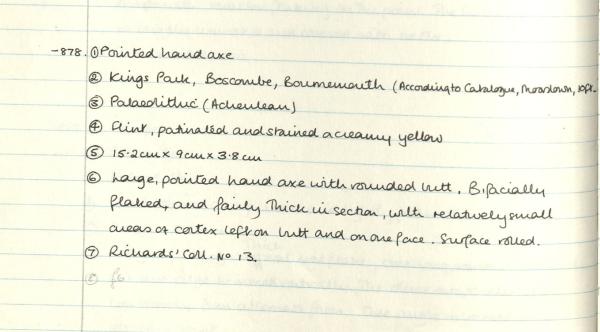 -878. ① Pointed hand axe
② Kings Park, Boscombe, Bournemouth (According to Catalogue, Moordown, 10ft.
③ Palaeolithic (Acheulean)
④ Flint, patinated and stained a creamy yellow
⑤ 15.2cm x 9cm x 3.8cm
⑥ Large, pointed hand axe with rounded butt. Bifacially
flaked, and fairly thick in section, with relatively small
areas of cortex left on butt and on one face. Surface rolled.
⑦ Richards' Coll. No 13.
⑧ f6